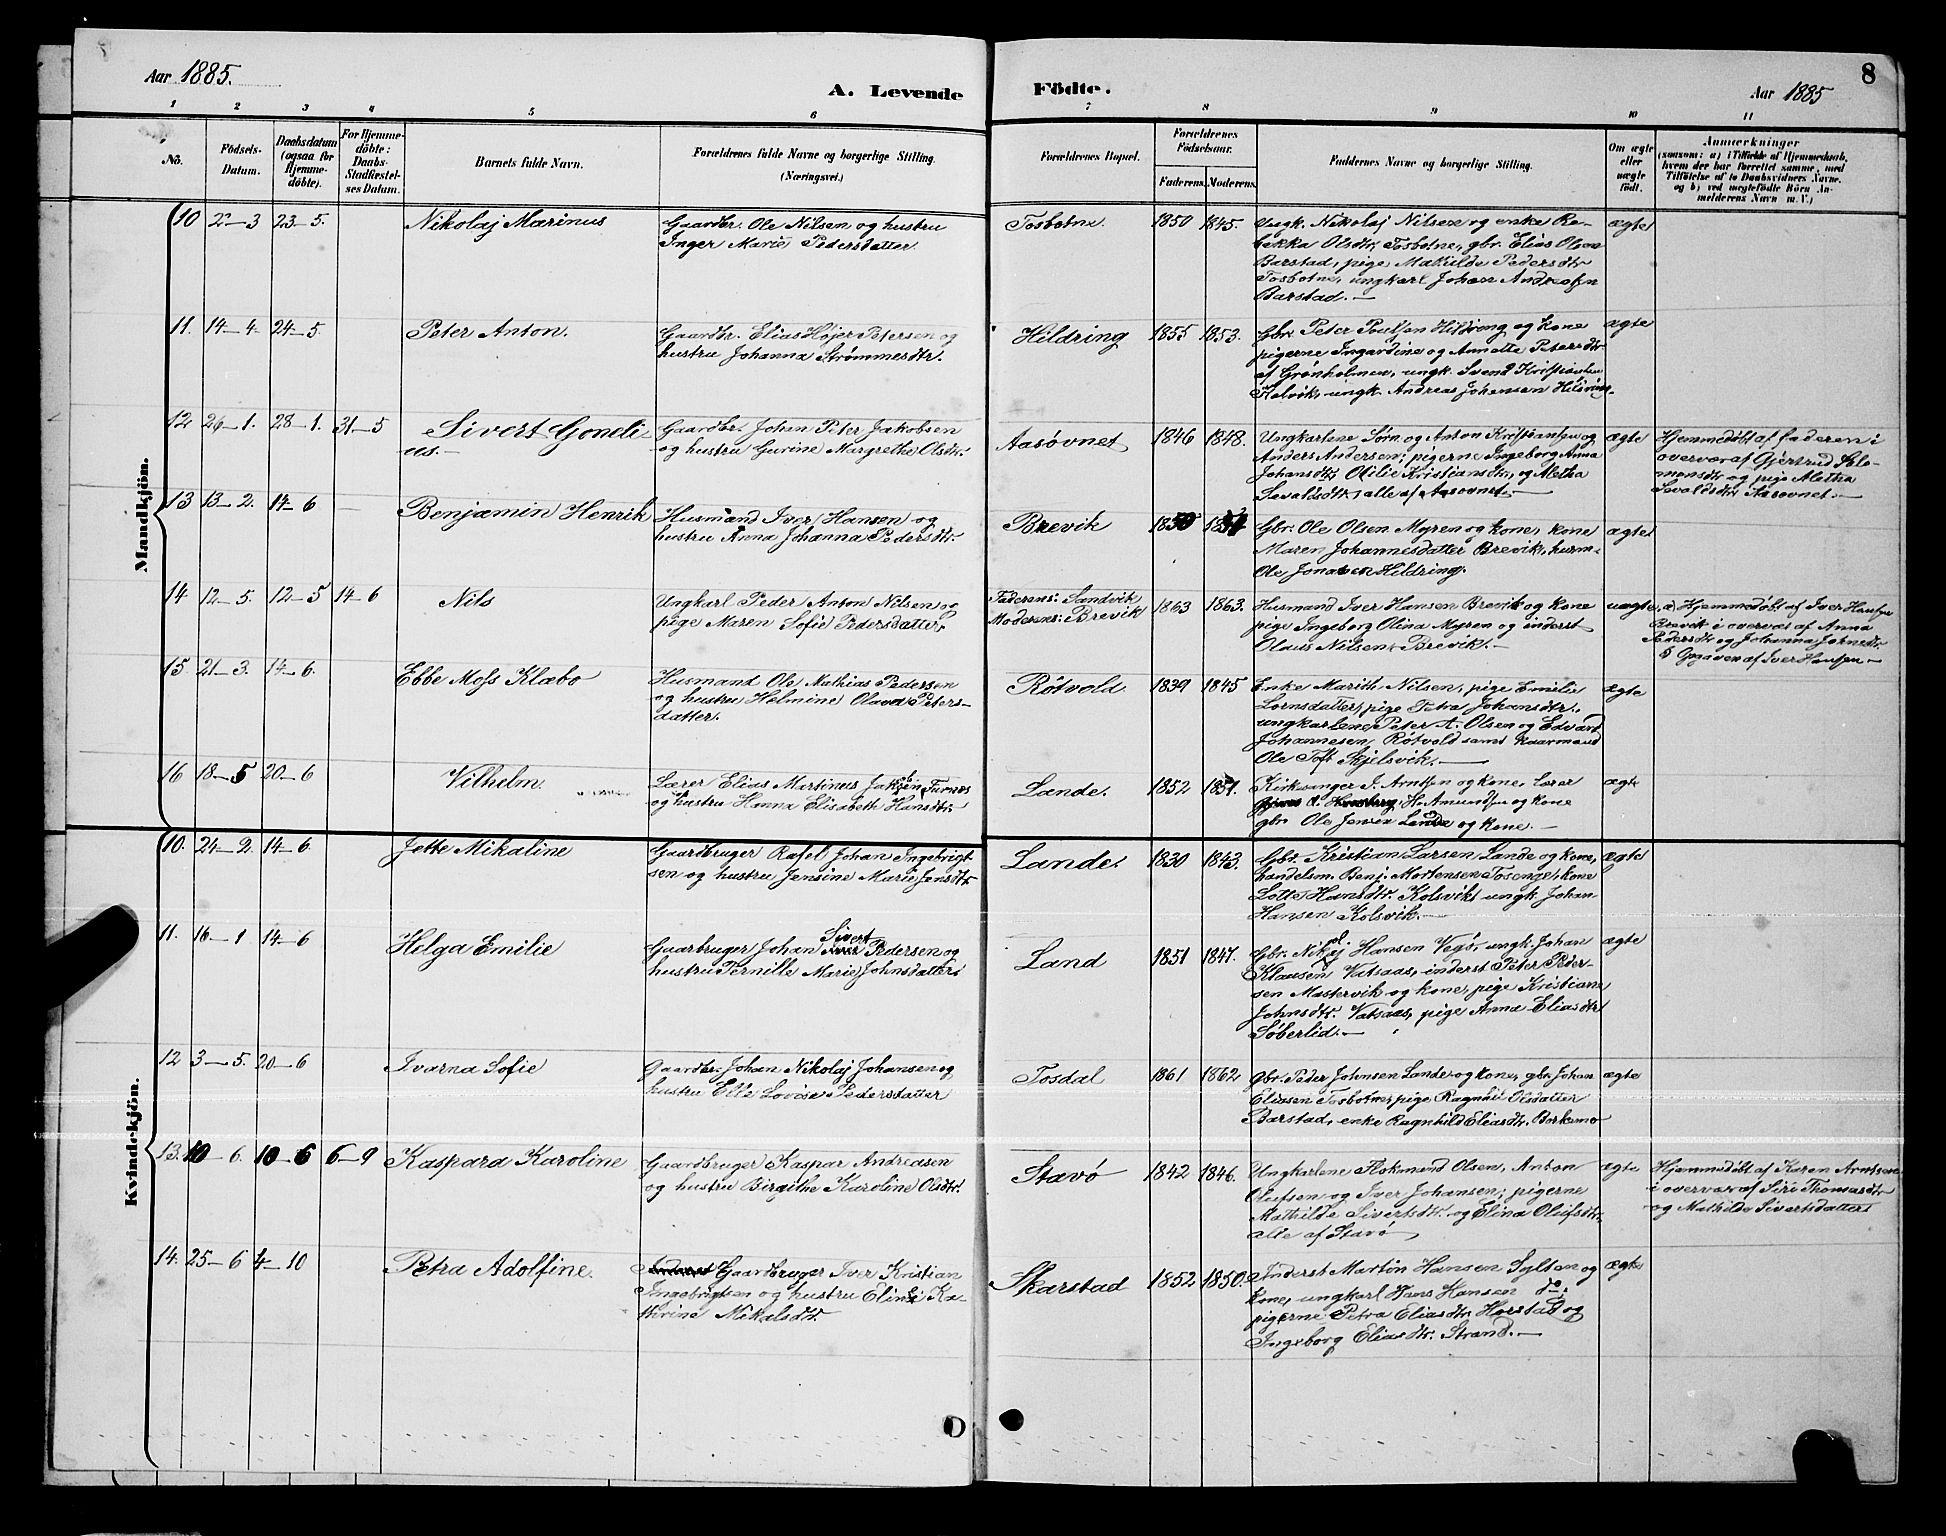 Aar 1885.
A. Levende
Födte.
Aar 1885
8
1 2 3 4 5 6 7 8 9 10 11
No.
Födsels-
Datum.
Daabsdatum
(ogsaa for
Hjemme-
döbte).
For Hjemme-
döbte:
Daabs-
Stadfæstel-
ses Datum.
Barnets fulde Navn.
Forældrenes fulde Navne og borgerlige Stilling.
(Næringsvei.)
Forældrenes Bopæl.
Forældrenes
Födselsaar.
Faderens. Moderens.
Faddernes Navne og borgerlige Stilling.
Om ægte
eller
uægte
födt.
Anmærkninger
(saasom: a) i Tilfælde af Hjemmedaab,
hvem der har forrettet samme, med
Tilföielse af to Daabsvidners Navne,
og b) ved uægtefödte Börn An-
melderens Navn m. V.)
Mandkjön.
10 2–3 23–5. Nikolaj Marinus
Gaardbr. Ole Nilsen og hustru
Inger Marie Pedersdatter.
Tosbotne. 1850 1845.
Ungk. Nikolaj Nilsen og enke Re-
bekka Olsdtr. Tosbotne, gbr. Elias Olsen
Barstad, pige Mathilde Pedersdtr
Tosbotne, ungkarl Johan Andreas
Barstad.—
ægte
11. 14–4. 24–5. Peter Anton.
Gaardbr. Elias Højer Petersen og
hustru Johanna Strømmesdtr.
Hildring 1855 1853.
Gbr. Peter Poulsen Hildring og kone
pigerne Ingardine og Annette Petersdtr
af Grønholmen, ungk. Svend Kristiansen
Holvik, ungk. Andreas Johansen Hildring.
ægte
12 26–1. 28–1. 31–5 Sivert Goneli-
us.—
Gaardbr. Johan Peter Jakobsen
og hustru Gurine Margrethe Olsdtr.
Aasøvnet 1846 1848.
Ungkarlene Sørn og Anton Kristiansen og
Anders Andersen; pigerne Ingeborg Anna
Johansdtr, Otilie Kristiansdtr, og Aletha
Sevaldsdtr, alle af Aasøvnet.—
ægte
Hjemmedøbt af faderen i
overvær af Gjertrud Salo-
monsdtr og pige Aletha
Sevaldsdtr Aasøvnet.—
13 13–2. 14–6 — Benjamin Henrik
Husmand Iver Hansen og
hustru Anna Johanna Pedersdtr.
Brevik 1850
Gbr. Ole Olsen Myren og kone, kone
Maren Johannesdatter Brevik, husm.
Ole Jonassen Hildring.
ægte
14. 12–5. 12–5 14–6 Nils
Ungkarl Peder Anton Nilsen og
pige Maren Sofie Pedersdatter,
Faderens: Sandvik
Moderens: Brevik
1863 1863.
Husmand Iver Hansen Brevik og kone
pige Ingeborg Olina Myren og inderst
Olaus Nilsen Brevik.—
uægte
a) Hjemmedøbt af Iver Hansen
Brevik i overvær af Anna
Pedersdtr og Johanna Johnsdtr
b) Opgaven af Iver Hansen—
15 21–3. 14–6. Ebbe Moss Klæbo
Husmand Ole Mathias Pedersen
og hustru Helmine Olava Peters-
datter.
Røtvold 1839 1845
Enke Marith Nilsen, pige Emelie
Lornsdatter, pige Petra Johansdtr.
ungkarlene Peter A. Olsen og Edvart
Johannesen, Røtvold samt kaarmand
Ole Toft Skjelsvik.—
ægte
16 18–5 20–6 Vilhelm.
Lærer Elias Martinus Jakobsen Turnes
og hustru Hanna Elisabeth Hansdtr.
Lande. 1852
Kirksanger J. Arntsen og kone, lærer
H. Amundsen og kone
gbr. Ole Jensen Lande og kone.—
ægte
Kvindekjön.
10. 24–2. 14–6. Jette Mikaline
Gaardbruger Rafel Johan Ingebrigt-
sen og hustru Jensine Marie Jensdtr.
Lande. 1830 1843.
Gbr. Kristian Larsen Lande og kone,
handelsm. Benj. Mortensen Tosenge, kone
Lotte Hansdtr. Kolsvik, ungk. Johan
Hansen Kolsvik.—
ægte
11. 16–1 14–6 Helga Emilie
Gaarbruger Johan Sivert Pedersen og
hustru Pernille Marie Johnsdatter
Land 1851 1847.
Gbr. Nikolaj Hansen Vegø, ungk. Johan
Klausen Vatsaas, inderst Peter Peder-
sen Mastervik og kone, pige Kristiane
Johnsdtr. Vatsaas, pige Anna Eliasdtr
Søberlid.—
ægte
12 3–5. 20–6 Ivarna Sofie
Gaardbr. Johan Nikolaj Johansen og
hustru Elle Lovise Pedersdatter
Tosdal 1861 1862
Gbr. Peder Johnsen Lande og kone, gbr. Johan
Eliasen Tosbotne, pige Ragnhil Olsdatter
Barstad, enke Ragnhild Eliasdtr. Borkamo
ægte
13. 10–6. 10–6 6–9 Kaspara Karoline
Gaardbruger Kaspar Andreasen
og hustru Birgithe Karoline Olsdtr.
Stavø 1842 1846.
Ungkarlene Flokmand Olsen, Anton
Olufsen og Iver Johansen; pigerne
Mathilde Sivertsdtr. og Elina Olufsdtr.
alle af Stavø
ægte
Hjemmedøbt af Karen Arntsen
i overvær af Siri Thomasdtr
og Mathilde Sivertsdatter
14. 25–6 4–10 Petra Adolfine.
Gaardbruger Iver Kristian
Ingebrigtsen og hustru Eline Ka-
thrine Mikalsdtr.
Skarstad 1852 1850.
Inderst Martin Hansen Sylten og
kone, ungkarl Hans Hansen do;
pigerne Petra Eliasdtr. Horstad og
Ingeborg Eliasdtr. Strand.—
ægte
D